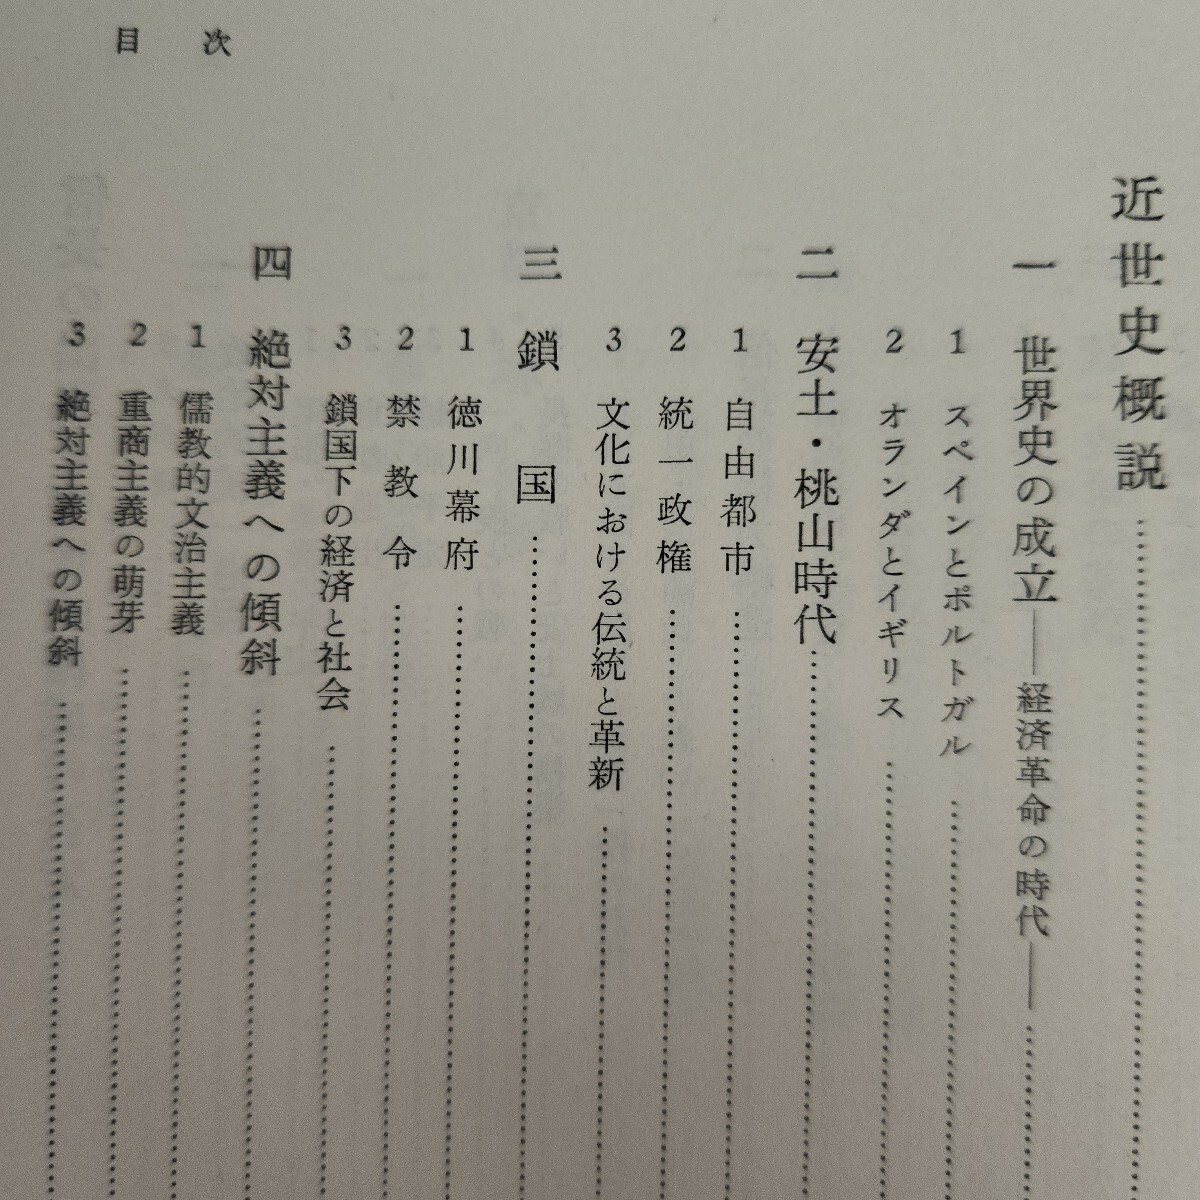 目次
近世史概説
一 世界史の成立――経済革命の時代――
1 スペインとポルトガル
2 オランダとイギリス
二 安土・桃山時代
1 自由都市
2 統一政権
3 文化における伝統と革新
三 鎖国
1 徳川幕府
2 禁教令
3 鎖国下の経済と社会
四 絶対主義への傾斜
1 儒教的文治主義
2 重商主義の萌芽
3 絶対主義への傾斜